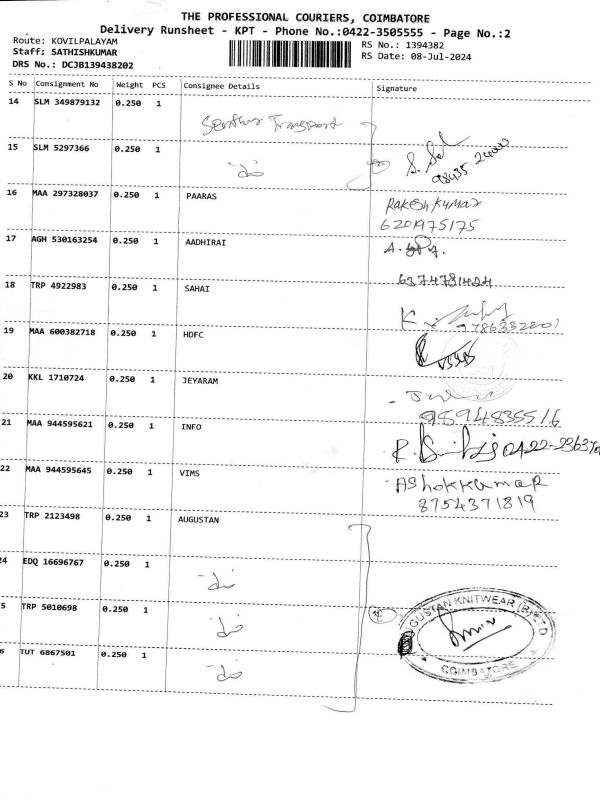 THE PROFESSIONAL COURIERS, COIMBATORE
Delivery Runsheet - KPT - Phone No.:0422-3505555 - Page No.:2
Route: KOVILPALAYAM
Staff: SATHISHKUMAR
DRS No.: DCJB139438202
RS No.: 1394382
RS Date: 08-Jul-2024
S No Consignment No Weight PCS Consignee Details Signature
14 SLM 349879132 0.250 1 Transport
15 SLM 5297366 0.250 1
16 MAA 297328037 0.250 1 PAARAS Rakesh Kumar
6201975175
17 AGH 530163254 0.250 1 AADHIRAI
6374781424
18 TRP 4922983 0.250 1 SAHAI
19 MAA 600382718 0.250 1 HDFC
20 KKL 1710724 0.250 1 JEYARAM
9894835516
21 MAA 944595621 0.250 1 INFO
22 MAA 944595645 0.250 1 VIMS AShokkumaR
8754371819
23 TRP 2123498 0.250 1 AUGUSTAN
24 EDQ 16696767 0.250 1
5 TRP 5010698 0.250 1
6 TUT 6867501 0.250 1
GUSTAN KNITWEAR (P) LTD
COIMBATORE